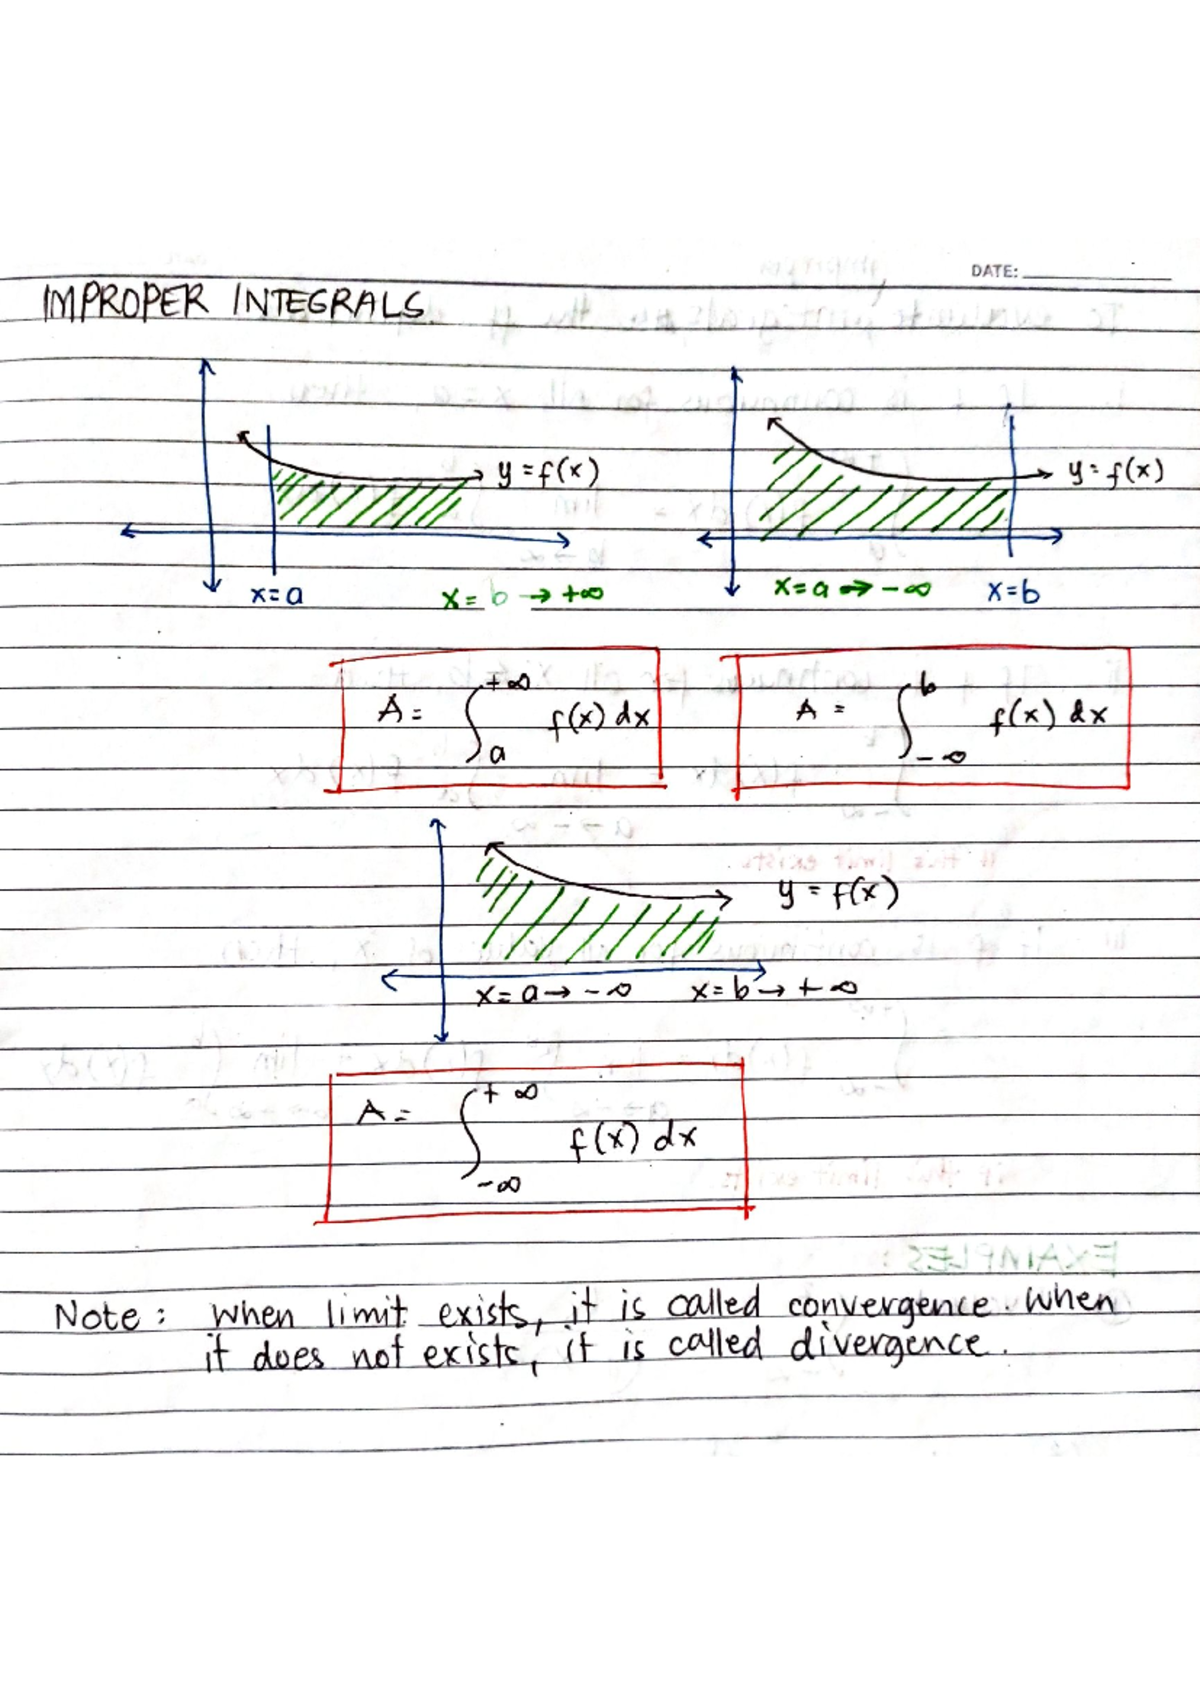 DATE:
IMPROPER INTEGRALS
y = f(x)
y = f(x)
x = a
x = b → +∞
x = a → -∞
x = b
A = ∫_a^{+∞} f(x) dx
A = ∫_{-∞}^b f(x) dx
y = f(x)
x = a → -∞
x = b → +∞
A = ∫_{-∞}^{+∞} f(x) dx
Note : When limit exists, it is called convergence. When
it does not exists, it is called divergence.